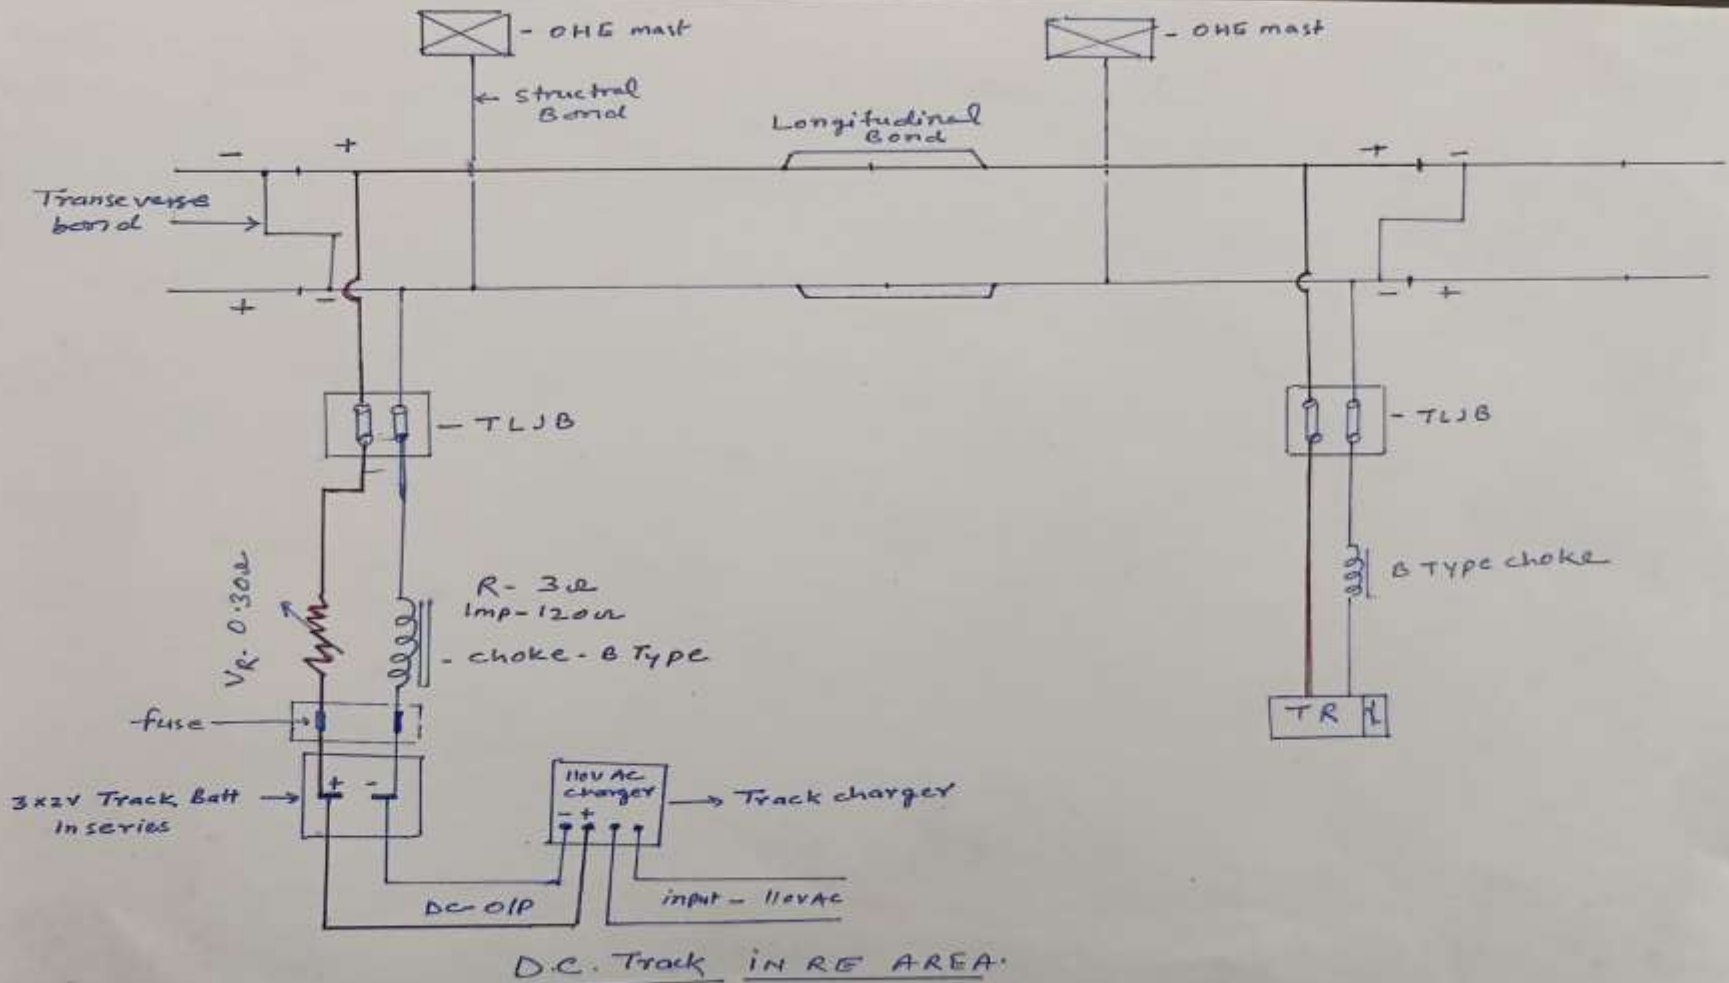 - OHE mast
- OHE mast
structral
Bond
Longitudinal
Bond
- +
+ -
Transeverse
bond
+ -
- +
- TLJB
- TLJB
VR- 0.30Ω
R- 3Ω
Imp- 120Ω
- choke - B Type
B Type choke
fuse
TR
+ -
3x2V Track Batt
in series
110V AC
charger
- +
Track charger
DC- O/P
input - 110VAC
D.C. Track IN RE AREA.